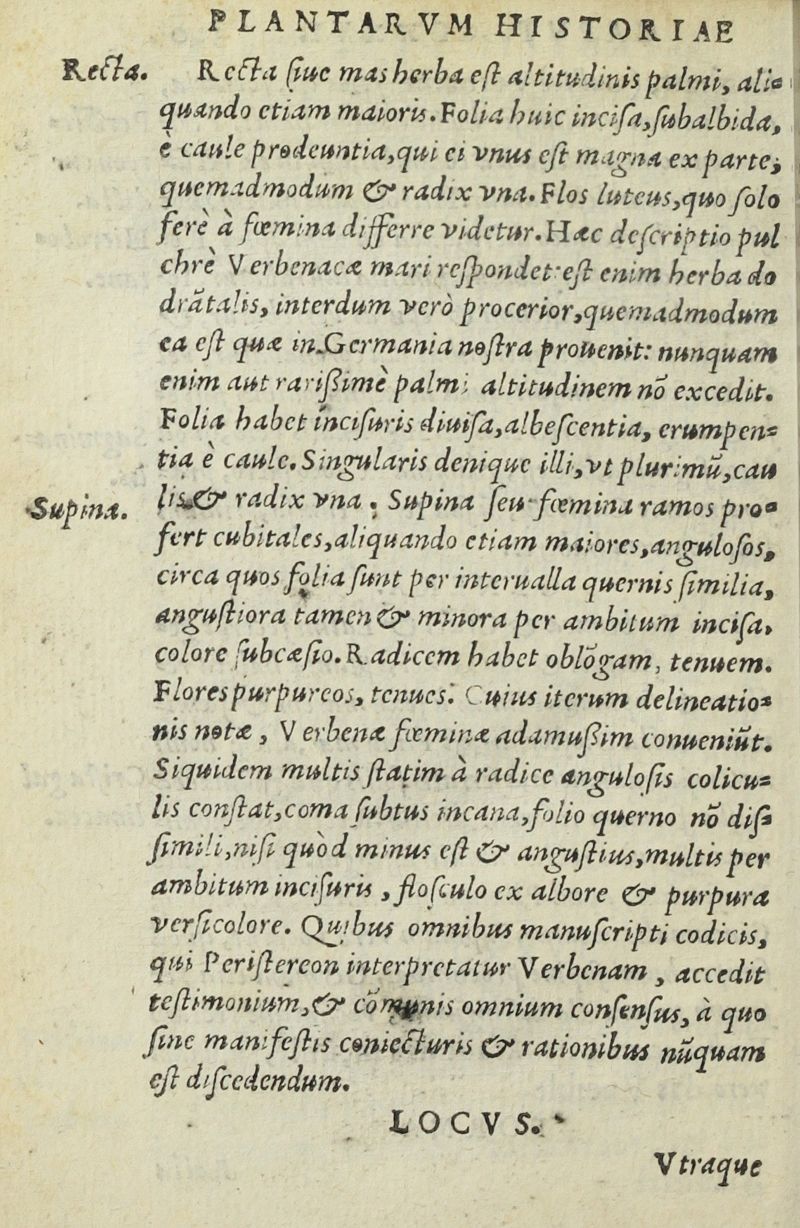 PLANTARVM HISTORIAE
Recta. Recta siue mas herba est altitudinis palmi, ali-
quando etiam maioris. Folia huic incisa, subalbida,
è caule prodeuntia, qui ei vnus est magna ex parte,
quemadmodum & radix vna. Flos luteus, quo solo
ferè à fœmina differre videtur. Hæc descriptio pul
chrè Verbenacæ mari respondet: est enim herba do
drãtalis, interdum verò procerior, quemadmodum
ea est quæ in Germania nostra prouenit: nunquam
enim aut rarißimè palmi altitudinem nõ excedit.
Folia habet incisuris diuisa, albescentia, erumpen-
tia è caule. Singularis denique illi, vt plurimũ, cau
Supina. lis & radix vna. Supina seu fœmina ramos pro-
fert cubitales, aliquando etiam maiores, angulosos,
circa quos folia sunt per interualla quernis similia,
angustiora tamen & minora per ambitum incisa,
colore subcæsio. Radicem habet oblõgam, tenuem.
Flores purpureos, tenues. Cuius iterum delineatio-
nis notæ, Verbenæ fœminæ adamußim conueniũt.
Siquidem multis statim à radice angulosis colicu-
lis constat, coma subtus incana, folio querno nõ dis-
simili, nisi quòd minus est & angustius, multis per
ambitum incisuris, flosculo ex albore & purpura
versicolore. Quibus omnibus manuscripti codicis,
qui Peristereon interpretatur Verbenam, accedit
testimonium, & cõmunis omnium consensus, à quo
sine manifestis coniecturis & rationibus nũquam
est discedendum.
LOCVS.
Vtraque